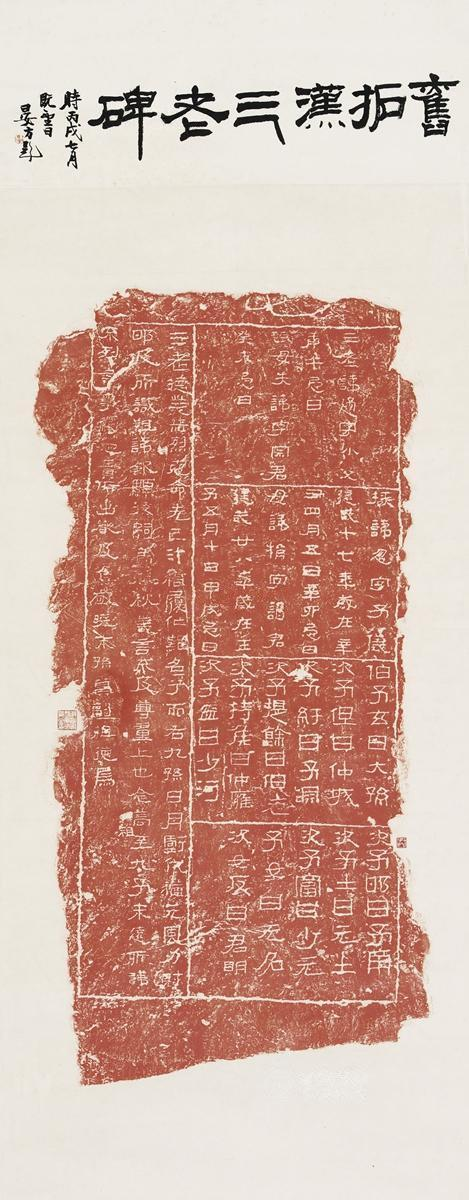 舊拓漢三老碑
時丙戌七月
既望日
三老諱通字小父
庚午忌日
祖母失諱字宗君
癸未忌日
掾諱忽字子儀
建武十七年歲在辛
丑四月五日辛卯忌日
母諱捐字謁君
建武廿八年歲在壬
子五月十日甲戌忌日
伯子玄曰大孫
次子但曰仲城
次子紆曰子淵
次子提餘曰伯老
次子持侯曰仲雍
次子盆曰少河
次子邯曰子南
次子士曰元士
次子富曰少元
子女曰无名
次女反曰君明
三老德業赫烈克命先己汁稽履仁難名兮而右九孫日月虧代猶元風力射
邯及所識祖諱欽顯後嗣蓋春秋義言不及尊翼上也念高祖至九子未遠所諱
不列言事觸忌貴所出嚴及敬曉末孫冀副祖德焉